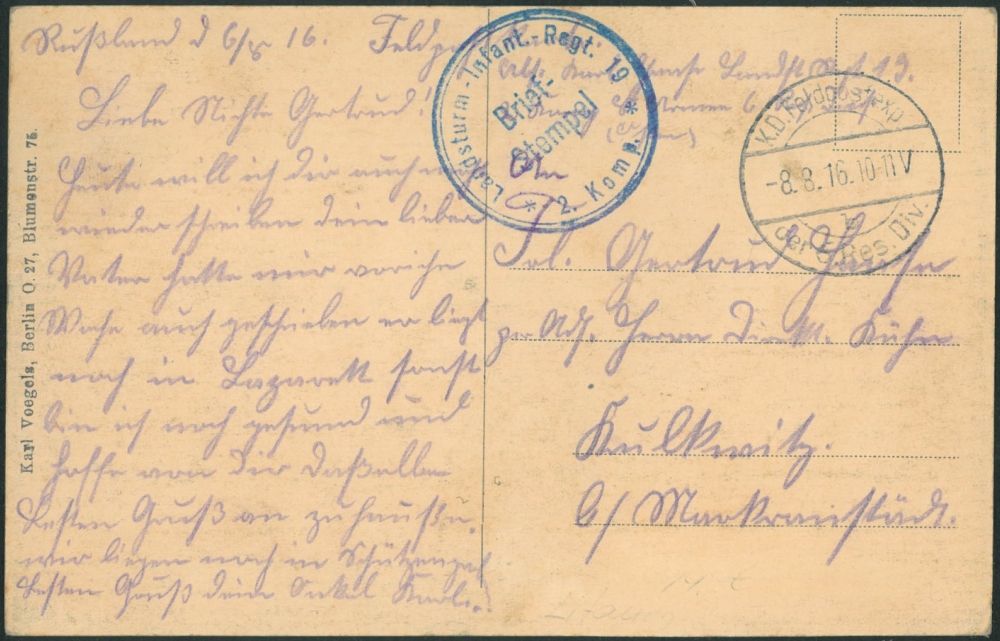 Rußland d 6/8 16.
Liebe Nichte Gertrud!
Heute will ich dir auch mal
wieder schreiben dein lieber
Vater hatte mir voriche
Woche auch geschrieben er liegt
noch in Lazarett sonst
bin ich noch gesund und
hoffe von dir daßelbe
Besten Gruß an zuhause
wir liegen noch in Schützengr
Besten Gruß dein Onkel Karl.
Karl Voegels, Berlin O. 27, Blumenstr. 75.
Feldpost
Landst 13.
Landsturm-Infant.-Regt. 19
Brief-
Stempel
* 2. Komp. *
K.D. Feldpostexp
-8.8.16.10-11V
der Res. Div.
An
Frl. Gertrud
pr Adr. Herrn Kühn
Kulkwitz.
b/ Markranstädt.